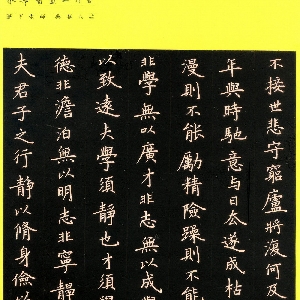 夫君子之行靜以脩身儉以
德非澹泊無以明志非寧靜
以致遠夫學須靜也才須
非學無以廣才非志無以成學
漫則不能勵精險躁則不能
年與時馳意与日去遂成枯
不接世悲守窮廬將復何及